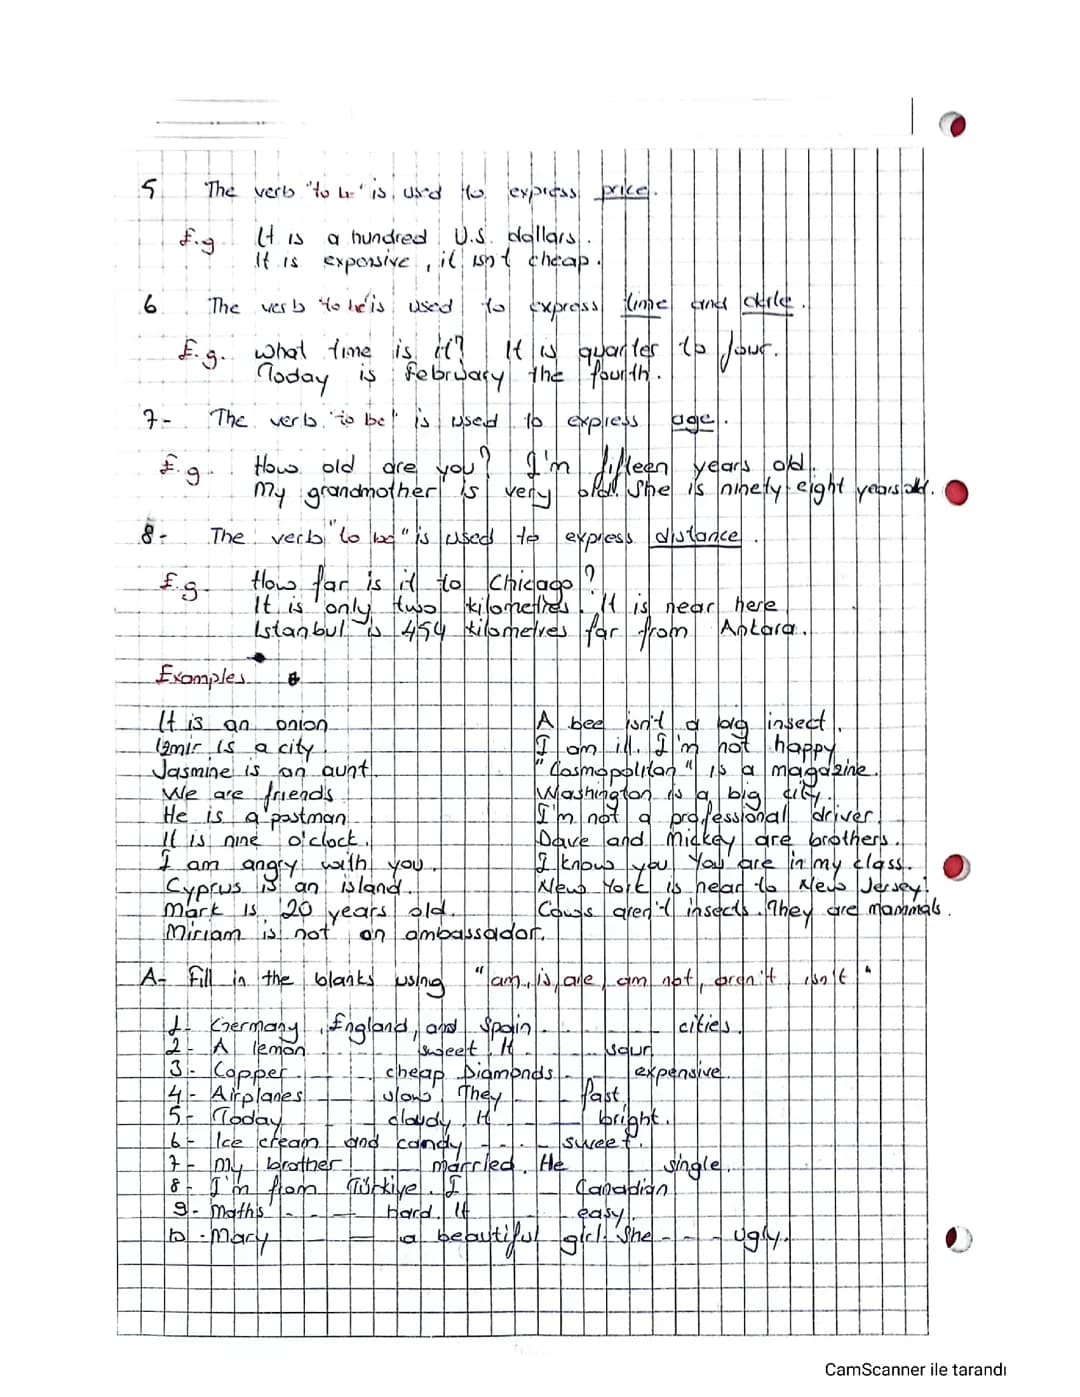 5 The verb "to be" is used to express price.
E.g. It is a hundred U.S. dollars.
It is expensive, it isn't cheap.
6 The verb "to be" is used to express time and date.
E.g. What time is it? It is quarter to four.
Today is February the fourth.
7- The verb "to be" is used to express age.
E.g. How old are you? I'm fifteen years old.
My grandmother is very old. She is ninety eight years old.
8- The verb "to be" is used to express distance.
E.g. How far is it to Chicago?
It is only two kilometres. It is near here
Istanbul is 454 kilometres far from Ankara.
Examples
It is an onion
Izmir is a city.
Jasmine is an aunt.
We are friends
He is a postman
It is nine o'clock.
I am angry with you.
Cyprus is an island.
Mark is 20 years old.
Miriam is not an ambassador.
A bee isn't a big insect.
I am ill. I'm not happy
"Cosmopolitan" is a magazine.
Washington is a big city.
I'm not a professional driver.
Dave and Mickey are brothers.
I know you You are in my class.
New York is near to New Jersey.
Cows aren't insects. They are mammals.
A- Fill in the blanks using "am, is, are, am not, aren't, isn't"
1- Germany, England, and Spain ... cities.
2- A lemon ... sweet. It ... sour
3- Copper ... cheap Diamonds ... expensive.
4- Airplanes ... slow. They ... fast.
5- Today ... cloudy. It ... bright.
6- Ice cream and candy ... sweet.
7- My brother ... married. He ... single.
8- I'm from Türkiye. I ... Canadian
9- Maths ... hard. It ... easy.
10- Mary ... a beautiful girl. She ... ugly.
CamScanner ile tarandı